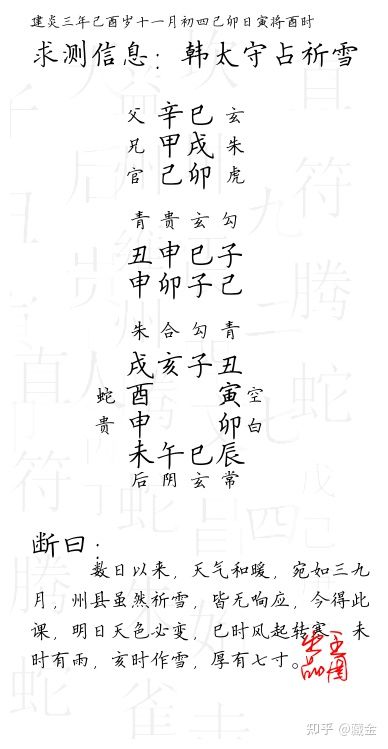 建炎三年己酉岁十一月初四己卯日寅将酉时
求测信息：韩太守占祈雪
父 辛巳 玄
兄 甲戌 朱
官 己卯 虎
青 贵 玄 勾
丑 申 巳 子
申 卯 子 己
朱 合 勾 青
戌 亥 子 丑
蛇 酉 寅 空
贵 申 卯 白
未 午 巳 辰
后 阴 玄 常
断曰：
数日以来，天气和暖，宛如三九
月，州县虽然祈雪，皆无响应，今得此
课，明日天色必变，巳时风起转寒，未
时有雨，亥时作雪，厚有七寸。
知乎 @藏金